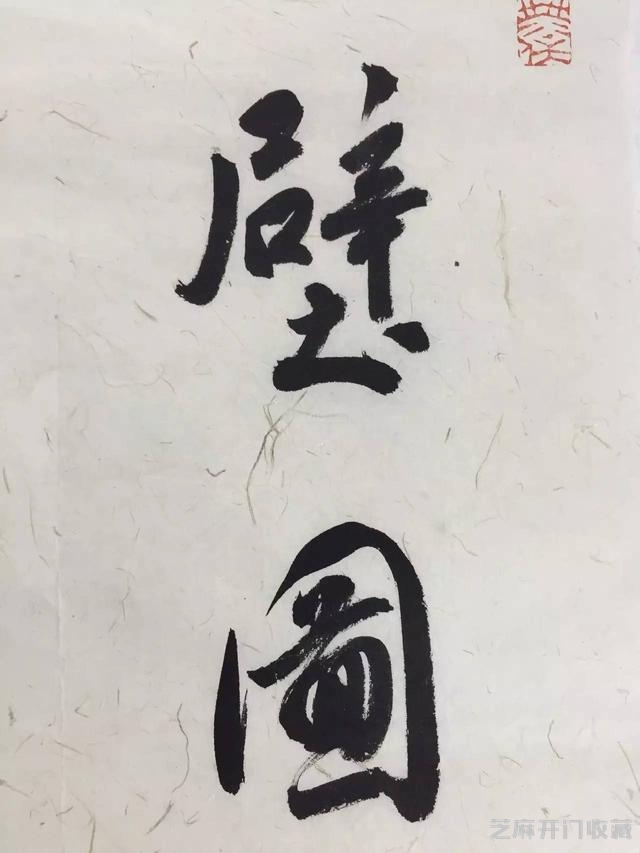 壁
圖
芝麻开门收藏